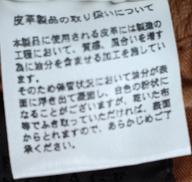 皮革製品の取り扱いについて
本製品に使用される皮革には製造の
工程において、質感、風合いを増す
為に油分を含ませる加工を施してい
ます。
そのため保管状況において油分が表
面に浮き出て凝固し、白色の粉状に
なることがございますが、乾いた布
等でふき取っていただければ、表面
からとれますので、あらかじめご了
承ください。